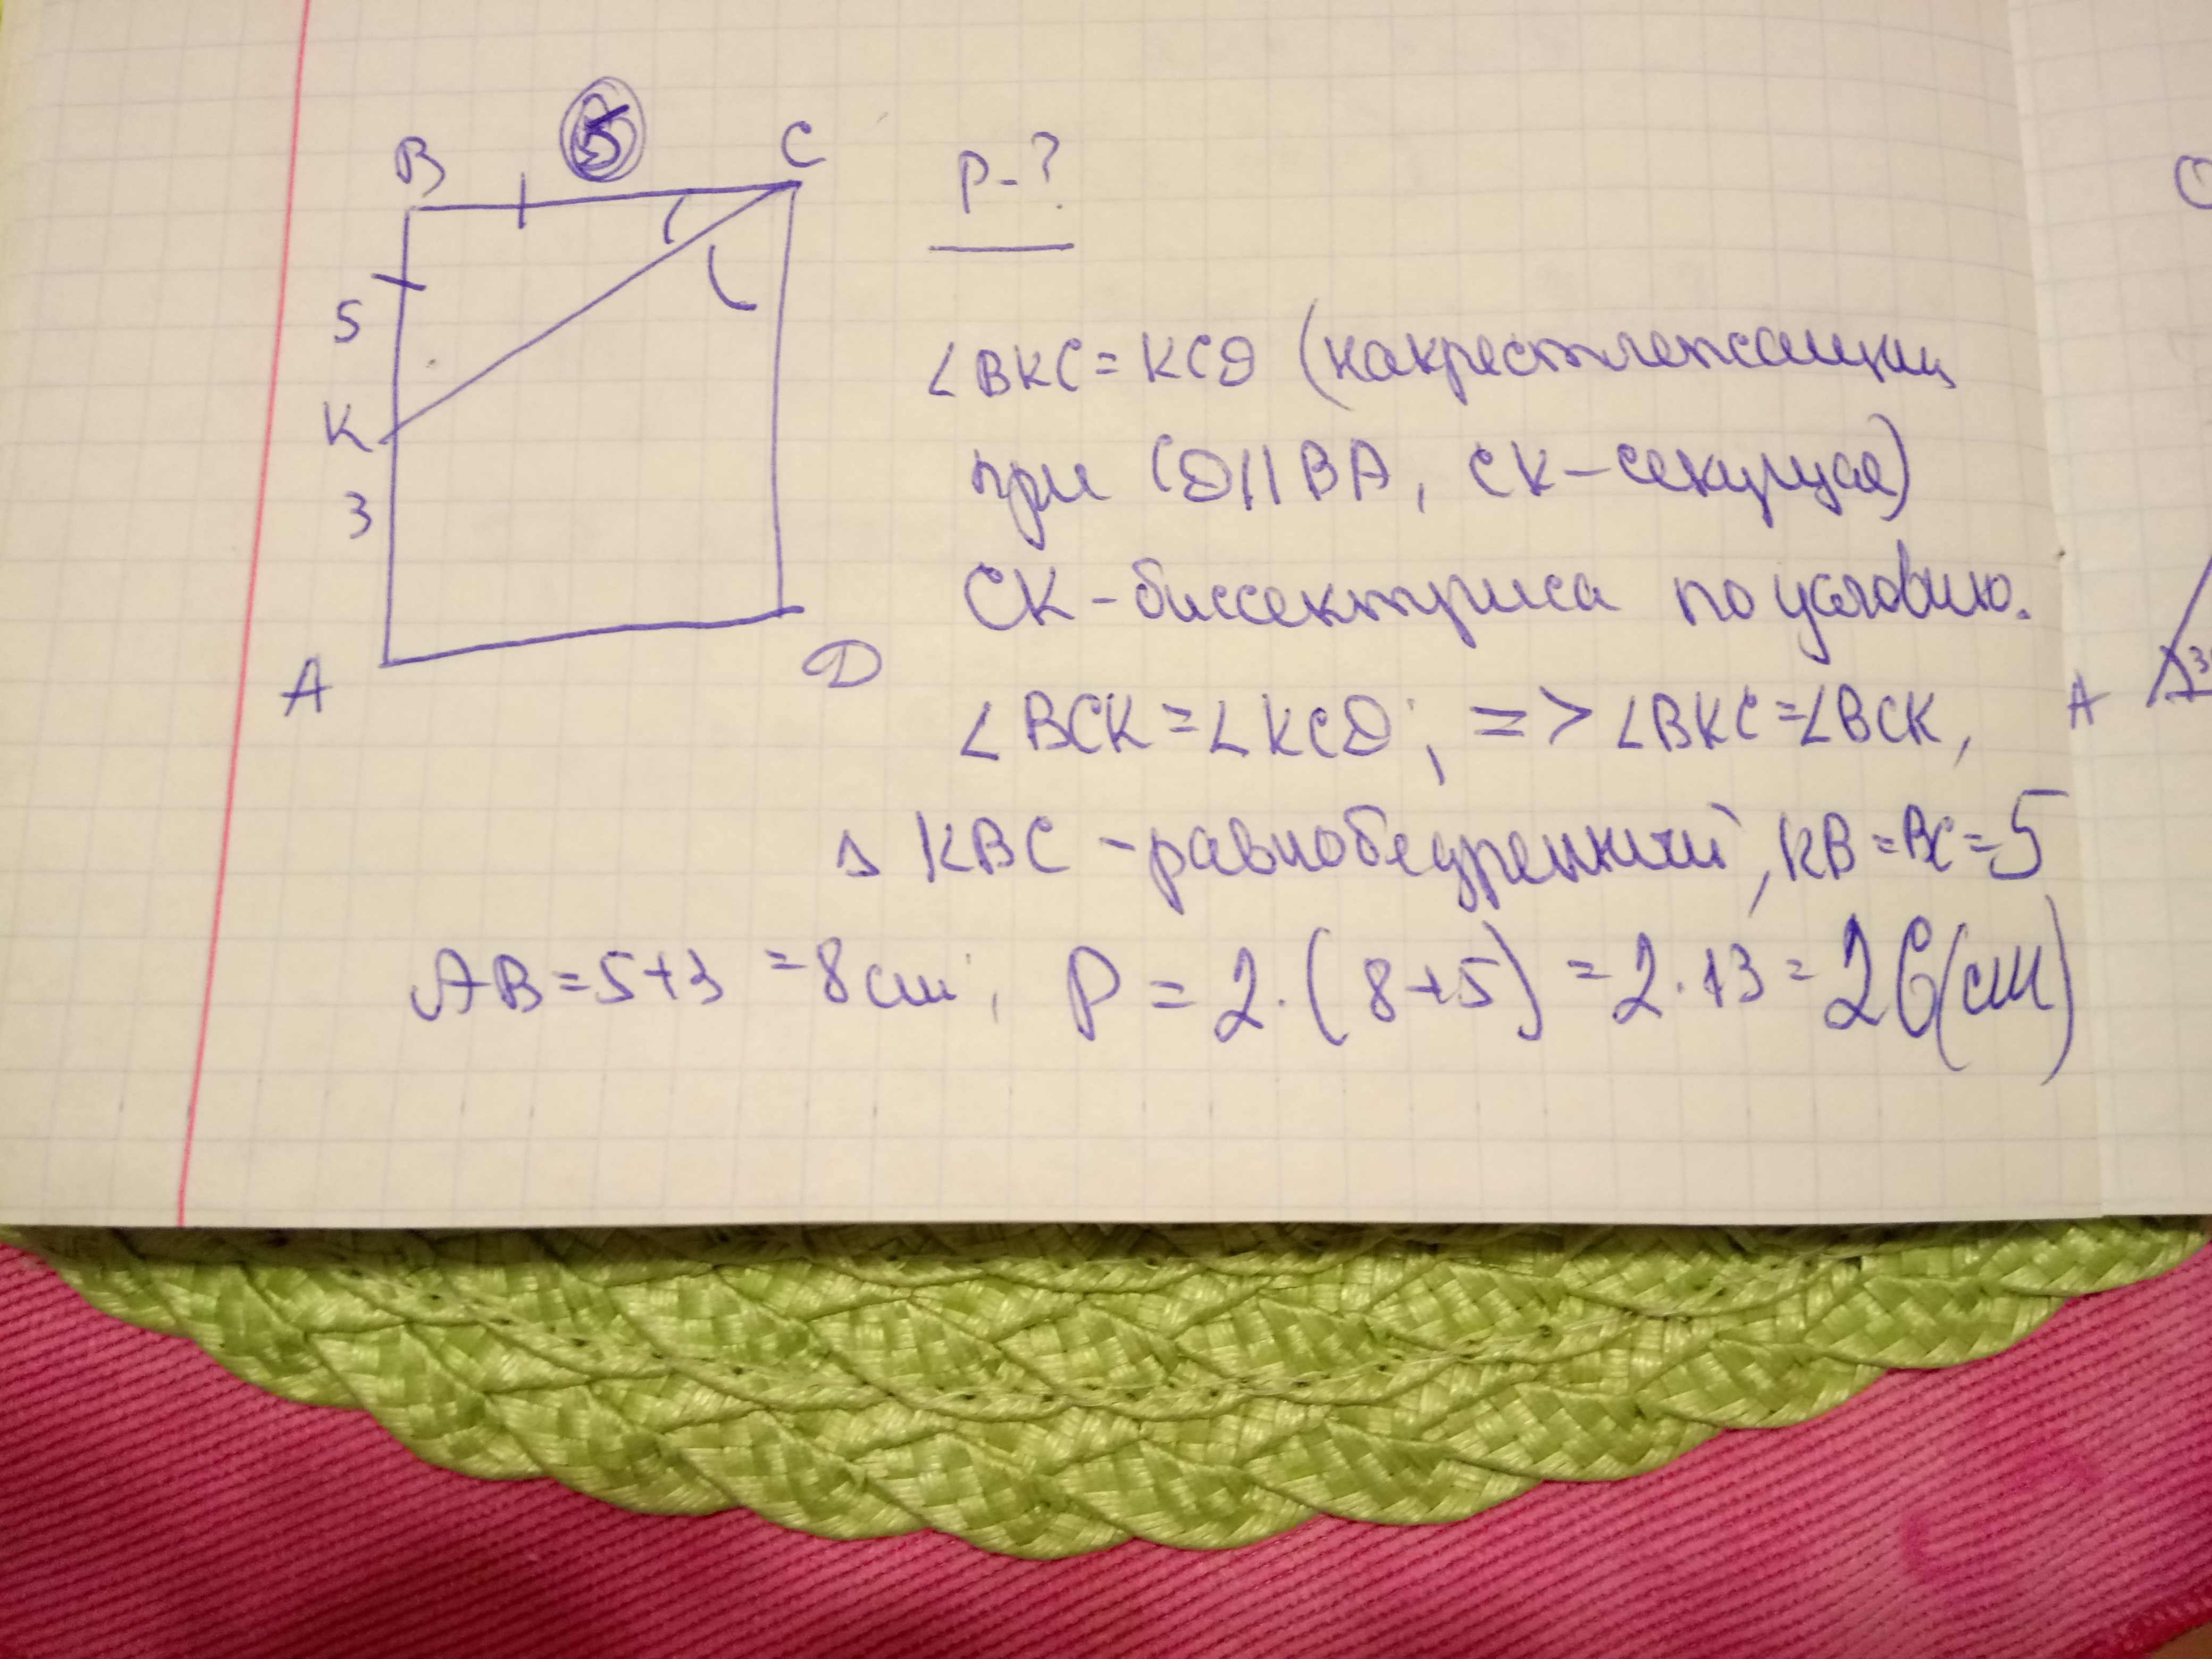 B 5 C
5
K
3
A D
P-?
∠BKC=KCD (накрестлежащие
при CD||BA, CK-секущая)
CK-биссектриса по условию.
∠BCK=∠KCD; => ∠BKC=∠BCK,
△ KBC -равнобедренный, KB=BC=5
AB=5+3=8см; P=2·(8+5)=2·13=26(см)
A